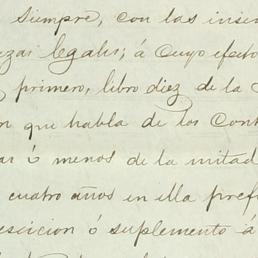 Siempre, con las inser
legales; á cuyo efecto
primero, libro diez de la
que habla de los Cont
ó menos de la mitad
cuatro años en illa pref
escicion ó suplemento á